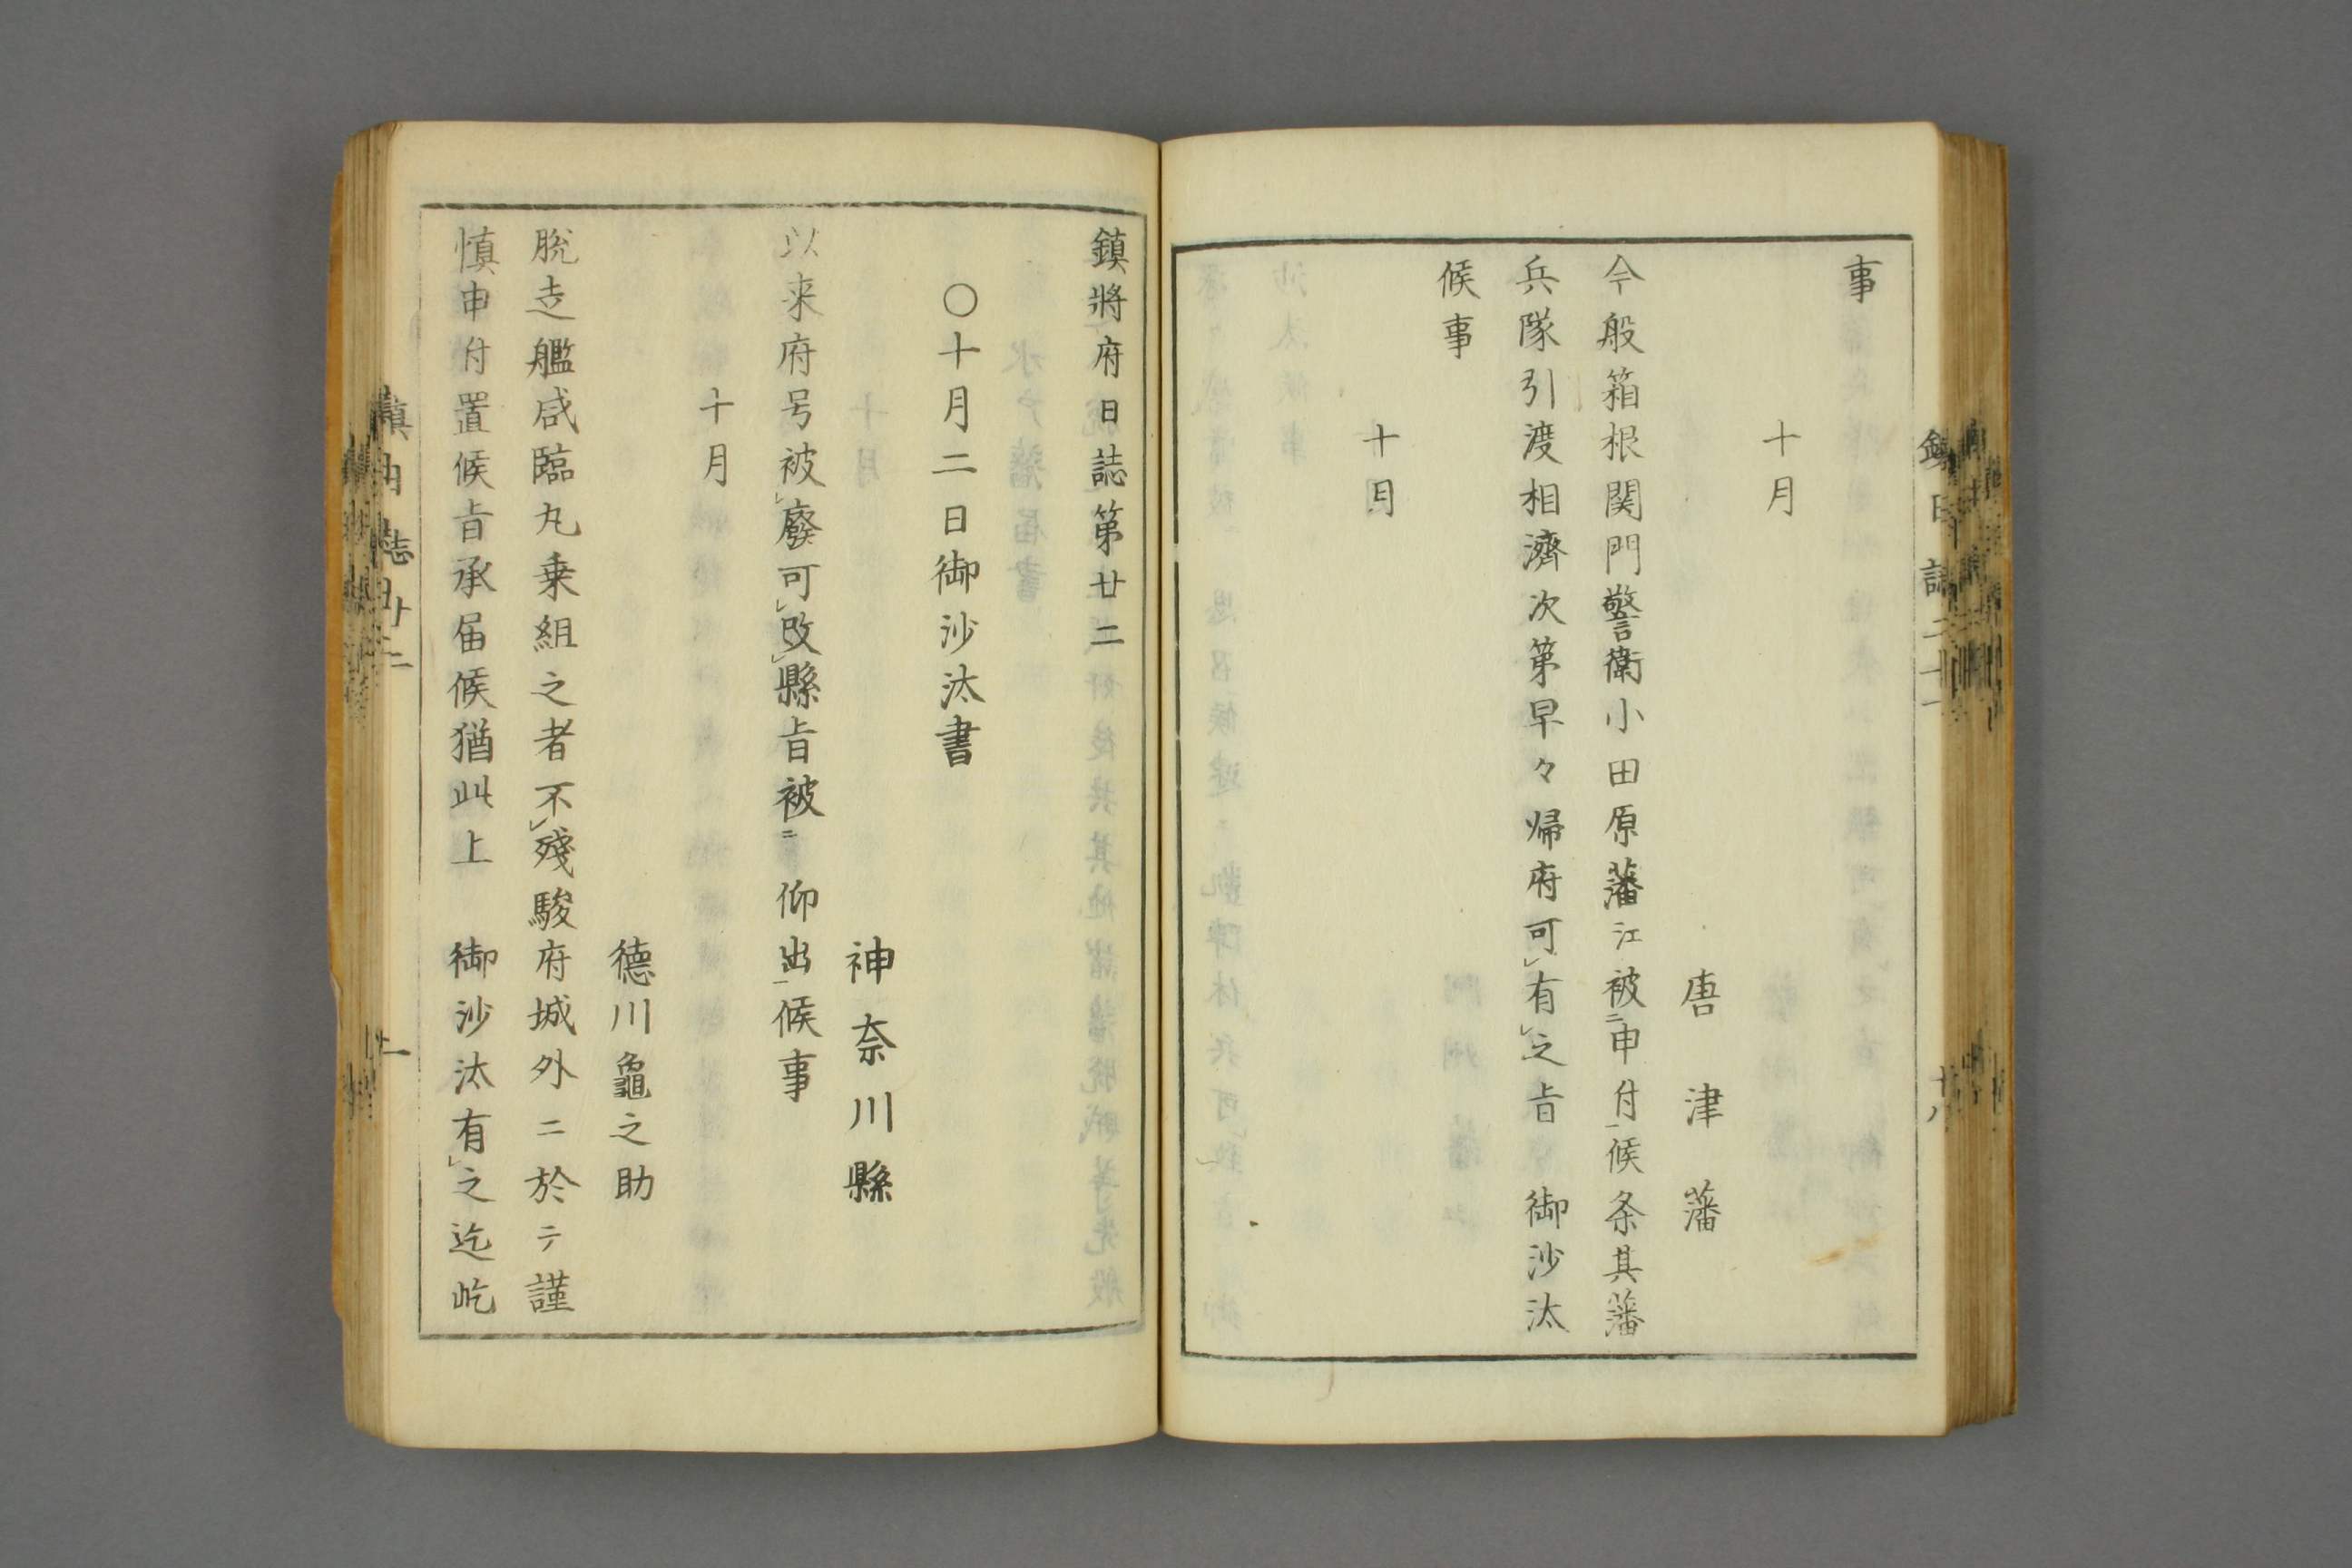 事
十月
唐津藩
今般箱根関門警衛小田原藩江被二申付一候条其藩
兵隊引渡相濟次第早々帰府可レ有レ之旨 御沙汰
候事
十月
鎮將府日誌第廿二
○十月二日御沙汰書
神奈川縣
以来府号被レ廢可レ改レ縣旨被二 仰出一候事
十月
德川龜之助
脱走艦咸臨丸乗組之者不レ殘駿府城外ニ於テ謹
慎申付置候旨承届候猶此上 御沙汰有レ之迄屹